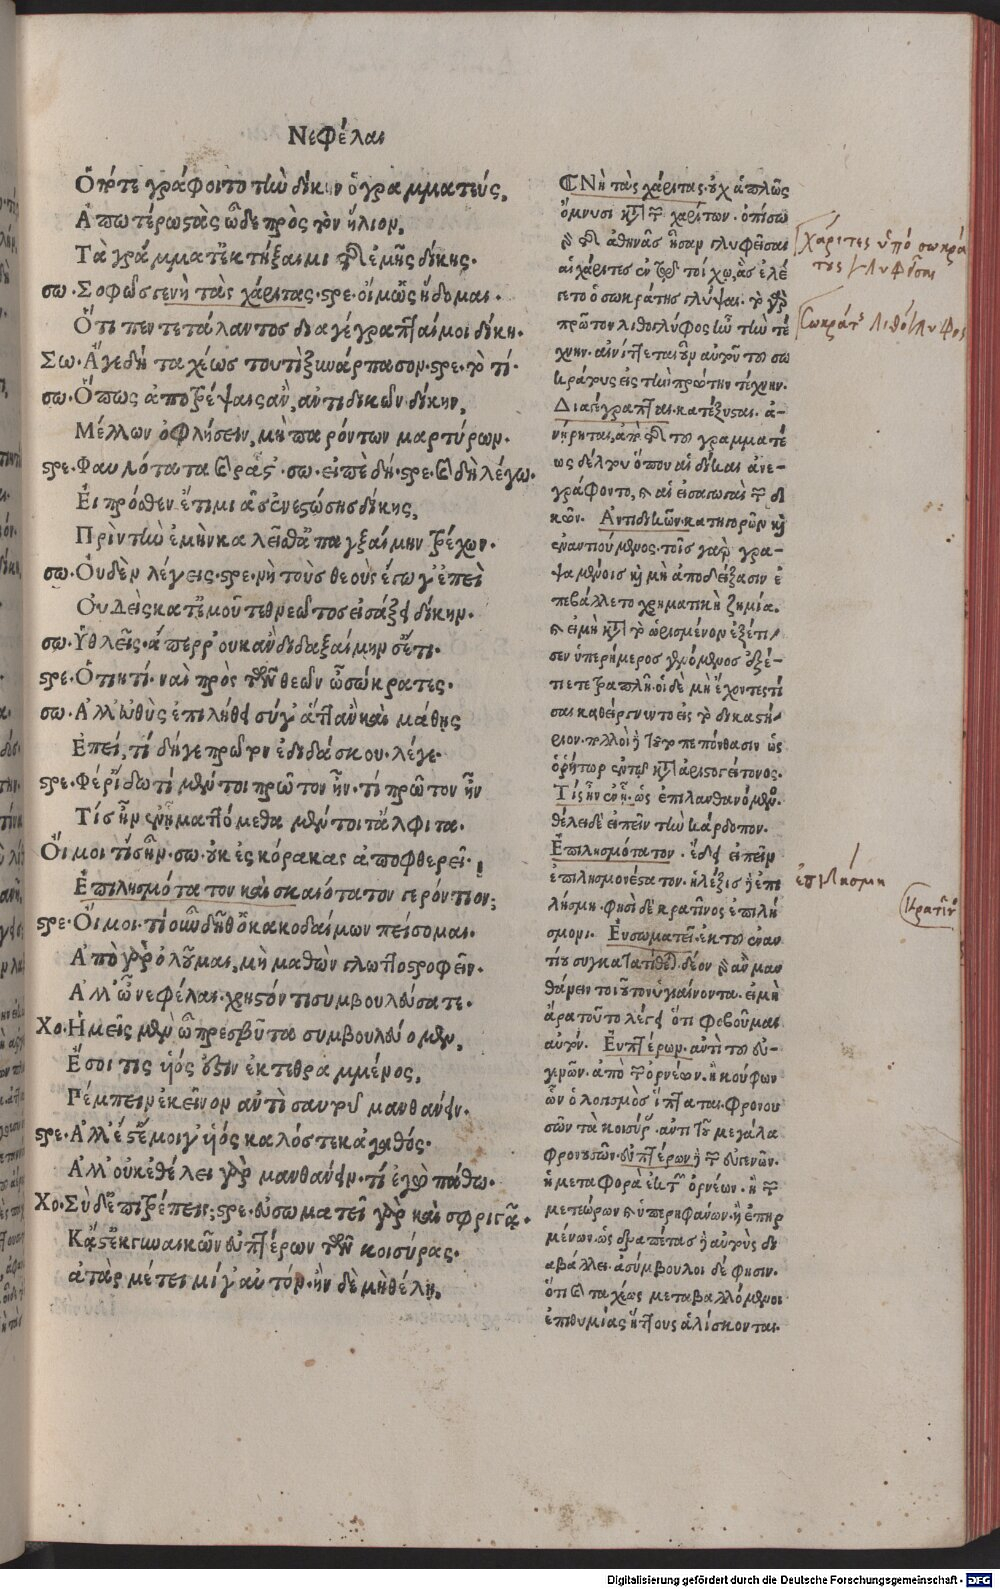 Νεφέλαι
Ὁπότε γράφοιτο τὴν δίκην ὁ γραμματεύς,
Ἀπωτέρω στὰς ὧδε πρὸς τὸν ἥλιον,
Τὰ γράμματ' ἐκτήξαιμι τῆς ἐμῆς δίκης.
σω. Σοφῶς γε νὴ τὰς χάριτας. στρε. οἴμ' ὡς ἥδομαι.
Ὅτι πεντετάλαντος διαγέγραπταί μοι δίκη.
Σω. Ἄγε δὴ ταχέως τουτὶ ξυνάρπασον. στρε. τὸ τί.
σω. Ὅπως ἀποτρέψαις ἂν, ἀντιδικῶν δίκην,
Μέλλων ὀφλήσειν, μὴ παρόντων μαρτύρων.
στρε. Φαυλότατα καὶ ῥᾷστ'. σω. εἰπὲ δή. στρε. καὶ δὴ λέγω.
Εἰ πρόσθεν ἔτι μιᾶς ἐνεστώσης δίκης,
Πρὶν τὴν ἐμὴν καλεῖσθ' ἀπαγξαίμην τρέχων.
σω. Οὐδὲν λέγεις. στρε. νὴ τοὺς θεοὺς ἔγωγ' ἐπεὶ
Οὐδεὶς κατ' ἐμοῦ τεθνεῶτος εἰσάξει δίκην.
σω. Ὑθλεῖς. ἄπερρ' οὐκ ἂν διδαξαίμην σ' ἔτι.
στρε. Ὁτιὴ τί. ναὶ πρὸς τῶν θεῶν ὦ σώκρατες.
σω. Ἀλλ' εὐθὺς ἐπιλήθει σύγ' ἅττ' ἂν καὶ μάθης
Ἐπεί, τί δή γε πρῶτον ἐδιδάσκου. λέγε.
στρε. Φέρ' ἴδω τί μέντοι πρῶτον ἦν. τί πρῶτον ἦν
Τίς ἦν ἐν ᾗ ματτόμεθα μέντοι τἄλφιτα.
Οἴμοι τίς ἦν. σω. οὐκ ἐς κόρακας ἀποφθερεῖ.
Ἐπιλησμότατον καὶ σκαιότατον γερόντιον;
στρε. Οἴμοι. τί οὖν δῆθ' ὁ κακοδαίμων πείσομαι.
Ἀπὸ γὰρ ὀλοῦμαι, μὴ μαθὼν γλωττοστροφεῖν.
Ἀλλ' ὦ νεφέλαι. χρηστόν τι συμβουλεύσατε.
Χο. Ἡμεῖς μὲν ὦ πρεσβῦτα συμβουλεύομεν,
Εἴ σοί τις υἱός ἐστιν ἐκτεθραμμένος,
Πέμπειν ἐκεῖνον ἀντὶ σαυτοῦ μανθάνειν.
στρε. Ἀλλ' ἔστ' ἔμοιγ' υἱός καλός τε κἀγαθός.
Ἀλλ' οὐκ ἐθέλει γὰρ μανθάνειν. τί ἐγὼ πάθω.
Χο. Σὺ δ' ἐπιτρέπεις; στρε. εὐσωματεῖ γὰρ καὶ σφριγᾷ.
Κἄστ' ἐκ γυναικῶν εὐπτέρων τῶν κοισύρας.
ἀτὰρ μέτειμί γ' αὐτόν. ἢν δὲ μὴ θέλῃ.
Νὴ τὰς χάριτας. οὐχ ἁπλῶς
ὄμνυσι κατὰ τῶν χαρίτων. ὀπίσω
γὰρ τῆς ἀθηνᾶς ἦσαν γλυφεῖσαι
αἱ χάριτες ἐν τῷ τοίχῳ, ἃς ἐλέ
γετο ὁ σωκράτης γλύψαι. τὸ γὰρ
πρῶτον λιθογλύφος ἦν τὴν τέ
χνην. αἰνίττεται οὖν αὐτοῦ του σω
κράτους εἰς τὴν πρώτην τέχνην.
Διαγέγραπται. κατέξυσται. ἀ-
νῄρηται, ἀπὸ τῆς του γραμματέ
ως δέλτου ὅπου αἱ δίκαι ἀνε-
γράφοντο, καὶ αἱ εἰσαγωγαὶ τῶν δι
κῶν. Ἀντιδικῶν. κατηγορῶν καὶ
ἐναντιούμενος. τοῖς γὰρ γρα-
ψαμένοις καὶ μὴ ἀποδείξασιν ἐ
πεβάλλετο χρηματικὴ ζημία.
καὶ εἰ μὴ κατὰ τὸ ὡρισμένον ἐξέτι
σεν ὑπερήμερος γενόμενος ἐξέ-
τιε τετραπλῆ. οἱ δὲ μὴ ἔχοντες τί
σαι καθείργνυντο εἰς τὸ δικαστή
ριον. πολλοὶ δὲ τοῦτο πεπόνθασιν ὡς
ὁ ῥήτωρ ἐν τῷ κατὰ ἀριστογείτονος.
Τίς ἦν ἐν ᾗ. ὡς ἐπιλανθανόμενος.
θέλει δὲ εἰπεῖν τὴν κάρδοπον.
Ἐπιλησμότατον. ἔδει εἰπεῖν
ἐπιλησμονέστατον. ἡ λέξις δὲ ἐπι
λήσμη. φησὶ δὲ κρατῖνος ἐπιλή
σμονι. Εὐσωματεῖ. ἐκ του ἐναν
τίου συγκατατίθεται. δέον γὰρ ἂν μαν
θάνειν τοιοῦτον ὑγιαίνοντα. εἰ μὴ
ἄρα τοῦτο λέγει ὅτι φοβοῦμαι
αὐτόν. Εὐπτέρων. ἀντὶ του εὐ-
γενῶν. ἀπὸ τῶν ὀρνέων. ἢ κούφων
ὧν ὁ λογισμὸς ἵπταται. φρονου
σῶν τὰ κοισύρας. ἀντὶ τοῦ μεγάλα
φρονουσῶν. εὐπτέρων δὲ τῶν εὐγενῶν.
ἡ μεταφορὰ ἐκ τῶν ὀρνέων. ἢ τῶν
μετεώρων καὶ ὑπερηφάνων. ἢ ἐπηρ
μένων. ὡς δραπέτας δὲ αὐτοὺς δι
αβάλλει. ἀσύμβουλοι δέ φησιν.
ὅτι καὶ ταχέως μεταβαλλόμενοι
ἐπιθυμίας ἥττους ἁλίσκονται.
χάριτες ὑπὸ σωκρά
τους γλυφεῖσαι
Σωκράτης λιθογλύφος
ἐπιλήσμη
Κρατῖνος
Digitalisierung gefördert durch die Deutsche Forschungsgemeinschaft - DFG